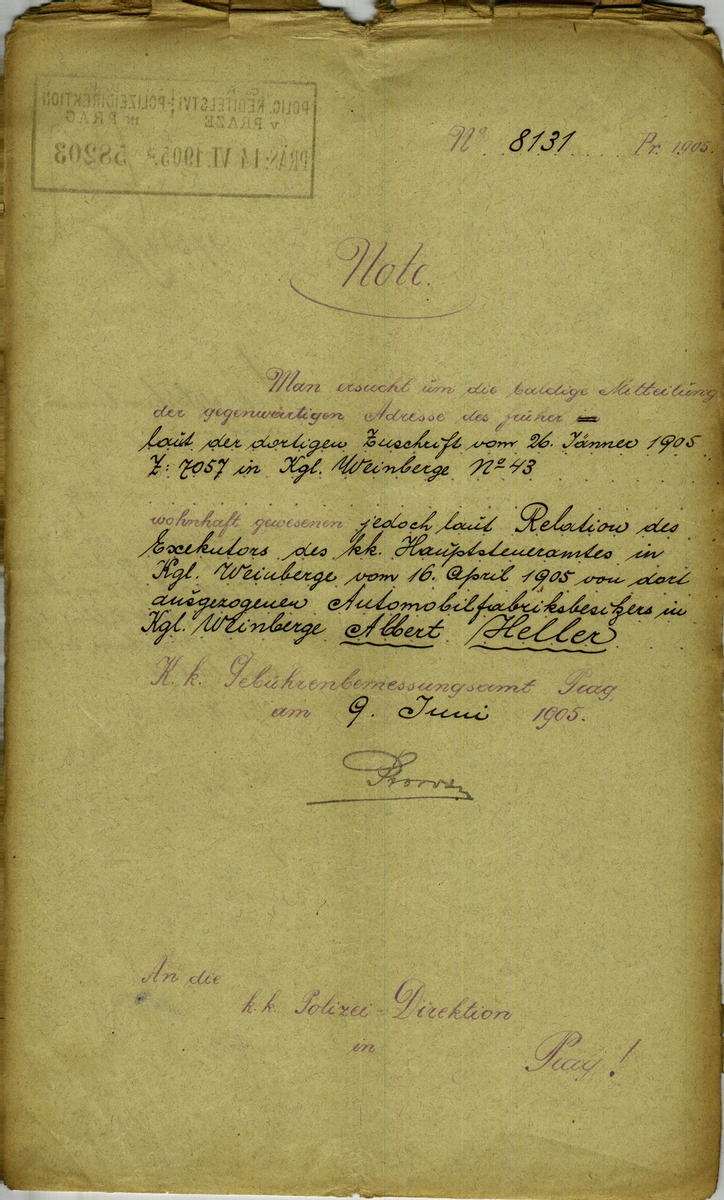 POLIC. ŘEDITELSTVÍ POLIZEIDIREKTION
v PRAZE in PRAG
PRÄS. 14 VI. 1905 58203
Nº 8131 Pr. 1905.
Note.
Man ersucht um die baldige Mitteilung
der gegenwärtigen Adresse des früher
laut der dortigen Zuschrift vom 26. Jänner 1905
Z: 7057 in Kgl. Weinberge Nº 43
wohnhaft gewesenen jedoch laut Relation des
Exekutors des kk. Hauptsteueramtes in
Kgl. Weinberge vom 16. April 1905 von dort
ausgezogenen Automobilfabriksbesitzers in
Kgl. Weinberge Albert Heller
K. k. Gebührenbemessungsamt Prag,
am 9. Juni 1905.
An die
k. k. Polizei-Direktion
in
Prag!